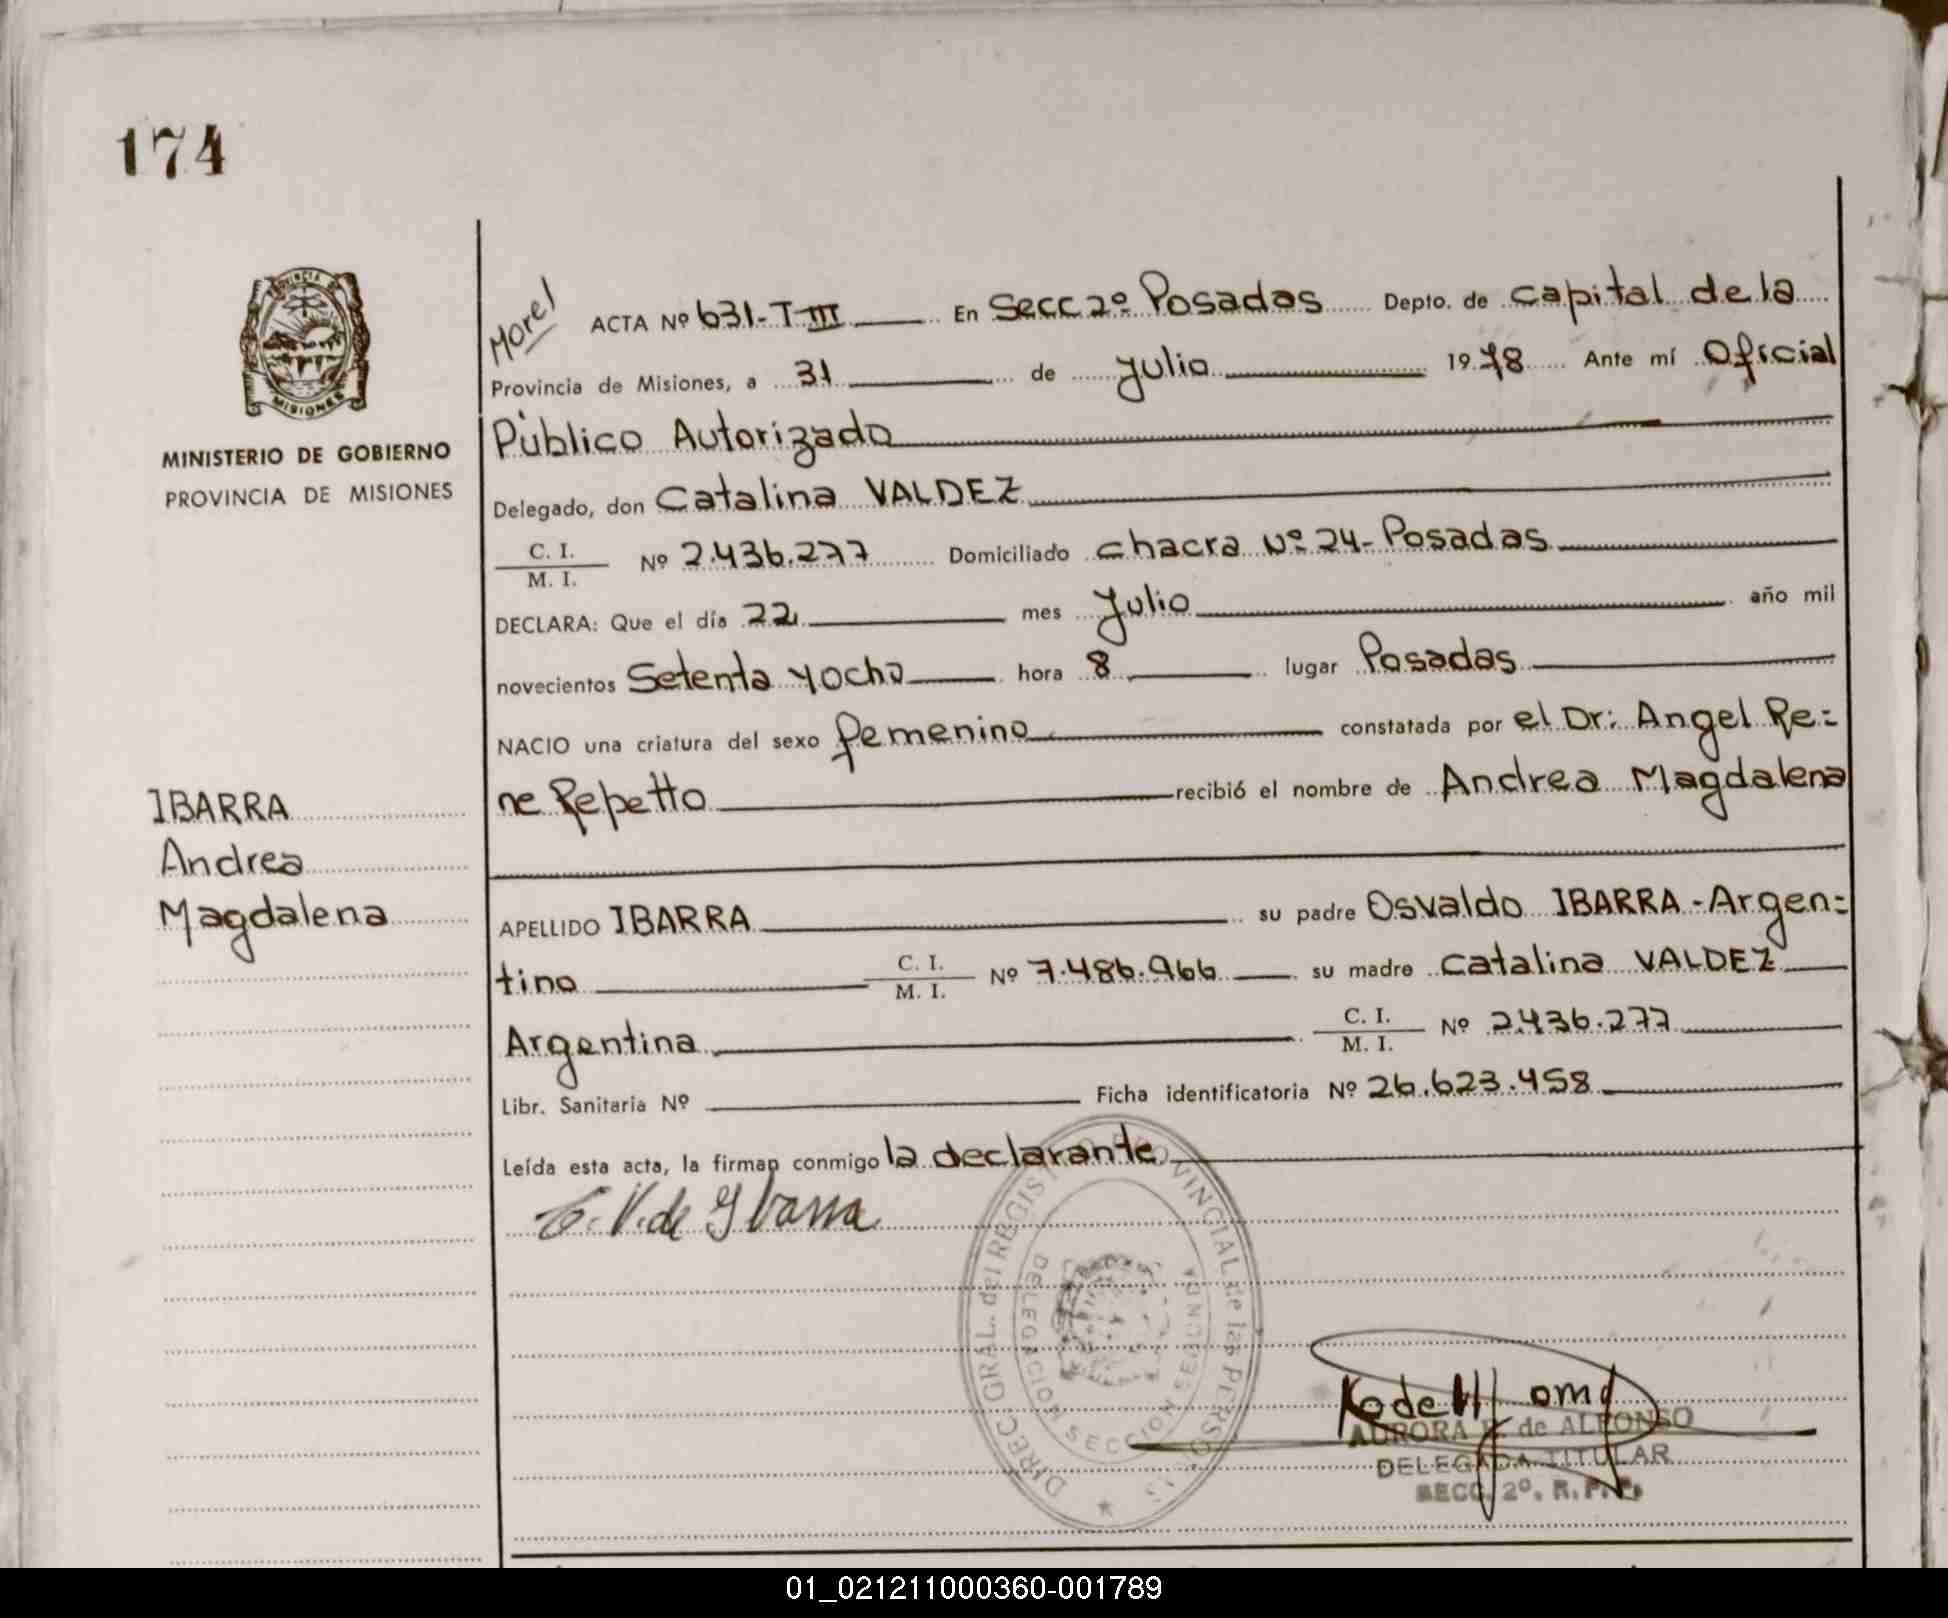 174
PROVINCIA DE
MISIONES
MINISTERIO DE GOBIERNO
PROVINCIA DE MISIONES
IBARRA
Andrea
Magdalena
Morel
ACTA Nº 631-T-III En Secc 2º Posadas Depto. de capital de la
Provincia de Misiones, a 31 de Julio 1978 Ante mí Oficial
Público Autorizado
Delegado, don Catalina VALDEZ
C. I.
M. I. Nº 2.436.277 Domiciliado chacra Nº 24- Posadas
DECLARA: Que el día 22 mes Julio año mil
novecientos Setenta y ocho hora 8 lugar Posadas
NACIO una criatura del sexo femenino constatada por el Dr: Angel Re=
ne Repetto recibió el nombre de Andrea Magdalena
APELLIDO IBARRA su padre Osvaldo IBARRA - Argen=
tino C. I.
M. I. Nº 7.486.966 su madre Catalina VALDEZ
Argentina C. I.
M. I. Nº 2.436.277
Libr. Sanitaria Nº Ficha identificatoria Nº 26.623.458
Leída esta acta, la firman conmigo la declarante
C. V. de Ibarra
DIREC. GRAL. del REGISTRO PROVINCIAL de las PERSONAS
DELEGACION SECCION SEGUNDA
AURORA de ALFONSO
DELEGADA TITULAR
SECC. 2º. R. P. P.
01_021211000360-001789